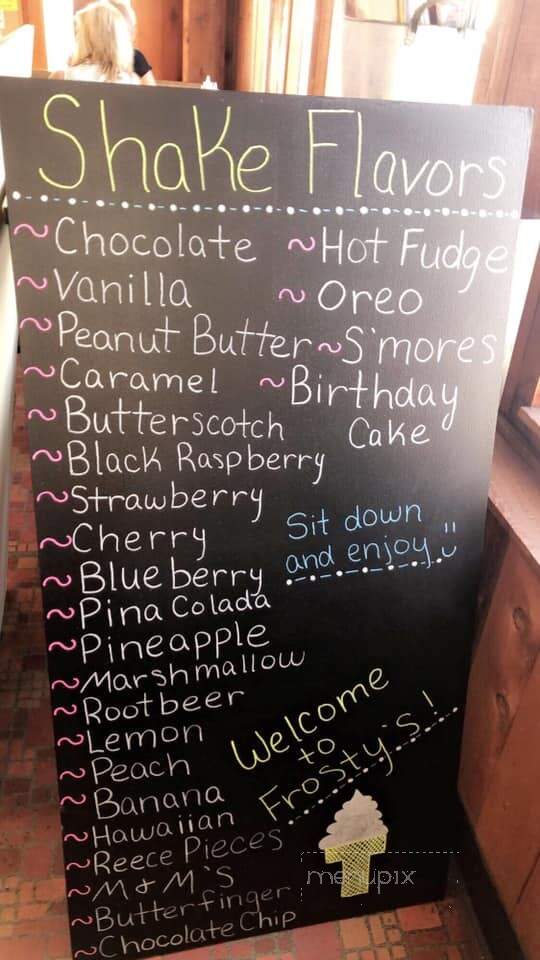 Shake Flavors
~Chocolate
~Vanilla
~Peanut Butter
~Caramel
~Butterscotch
~Black Raspberry
~Strawberry
~Cherry
~Blueberry
~Pina Colada
~Pineapple
~Marshmallow
~Rootbeer
~Lemon
~Peach
~Banana
~Hawaiian
~Reece Pieces
~M & M'S
~Butterfinger
~Chocolate Chip
~Hot Fudge
~Oreo
~S'mores
~Birthday
Cake
Sit down
and enjoy
Welcome
to
Frosty's!
menupix